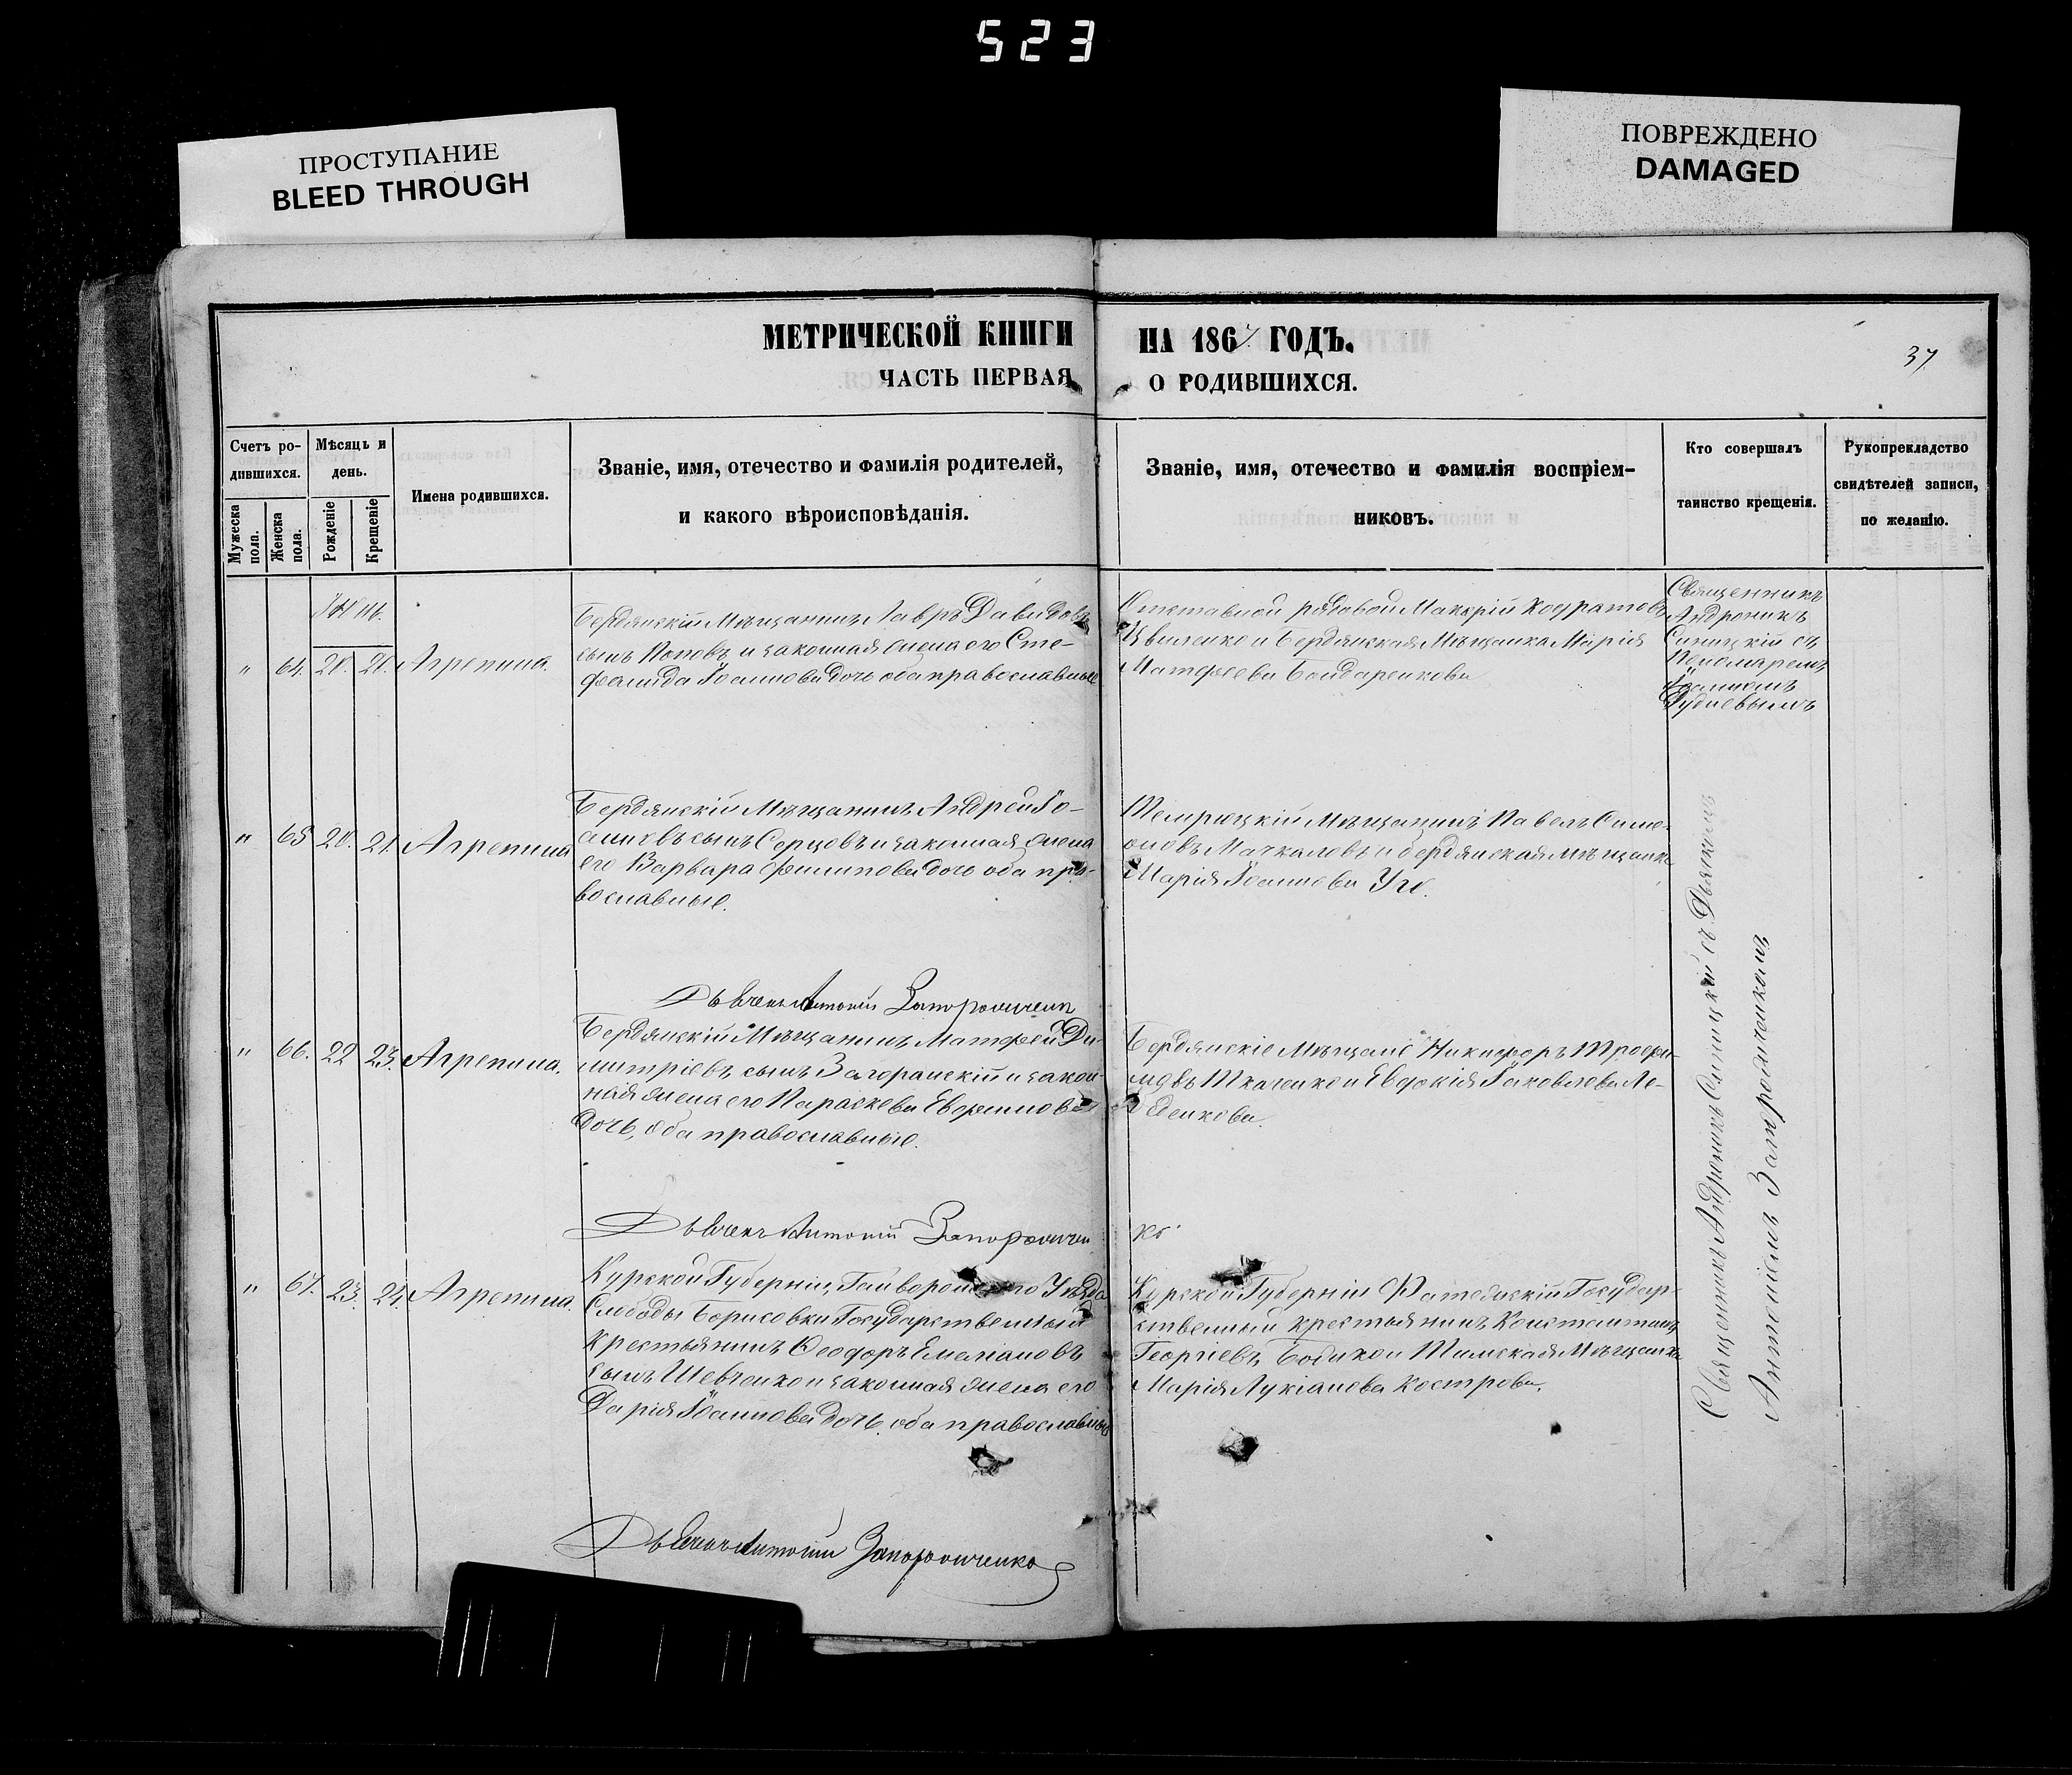 523
ПРОСТУПАНИЕ
BLEED THROUGH
ПОВРЕЖДЕНО
DAMAGED
МЕТРИЧЕСКОЙ КНИГИ НА 1867 ГОДЪ.
ЧАСТЬ ПЕРВАЯ О РОДИВШИХСЯ.
37
Счетъ ро-
дившихся.
Мужеска пола.
Женска пола.
Мѣсяцъ и
день.
Рожденіе
Крещеніе
Имена родившихся.
Званіе, имя, отечество и фамилія родителей,
и какого вѣроисповѣданія.
Званіе, имя, отечество и фамилія воспріем-
никовъ.
Кто совершалъ
таинство крещенія.
Рукоприкладство
свидѣтелей записи,
по желанію.
" 64. 20. 21. Агрепина.
Бердянскій Мѣщанинъ Лавръ Давидовъ
сынъ Поповъ и законная жена его Сте-
фанида Іоаннова дочь оба православные
Отставной рядовой
и Бердянская Мѣщанка Марія
Матфеева Бондаренкова
Священникъ
Андроникъ
Синицкій съ
Пономаремъ
Іоанномъ
" 65 20. 21. Агрепина
Бердянскій Мѣщанинъ Андрей Іо-
анновъ сынъ Серцовъ и законная жена
его Варвара Филипова дочь оба пра-
вославные.
Темрюцкій Мѣщанинъ Павелъ Симе-
оновъ Мачкаловъ и бердянская мѣщанка
Марія Іоаннова
Дьяченъ Антоній
" 66. 22 23. Агрепина.
Бердянскій Мѣщанинъ Матфей Ди-
митріевъ сынъ Загоранскій и закон-
ная жена его Параскева Евфимова
дочь, оба православные.
Бердянскіе Мѣщане Никифоръ Трофи-
мовъ Ткаченко и Евдокія Іаковлева Ле-
бденкова.
Дьяченъ Антоній
ко
" 67. 23. 24. Агрепина.
Курской Губерніи, Уѣзда
Слободы Борисовки Государственный
крестьянинъ Феодоръ Емеліановъ
сынъ Шевченко и законная жена его
Дарія Іоаннова дочь, оба православные
Курской Губерніи Фатежскій Государ-
ственный крестьянинъ Константинъ
Георгіевъ и Тимская Мѣщанка
Марія Лукіанова Кострова.
Священникъ Андроникъ Синицкій съ Дьякономъ
Антоніемъ
Дьяченъ Антоній